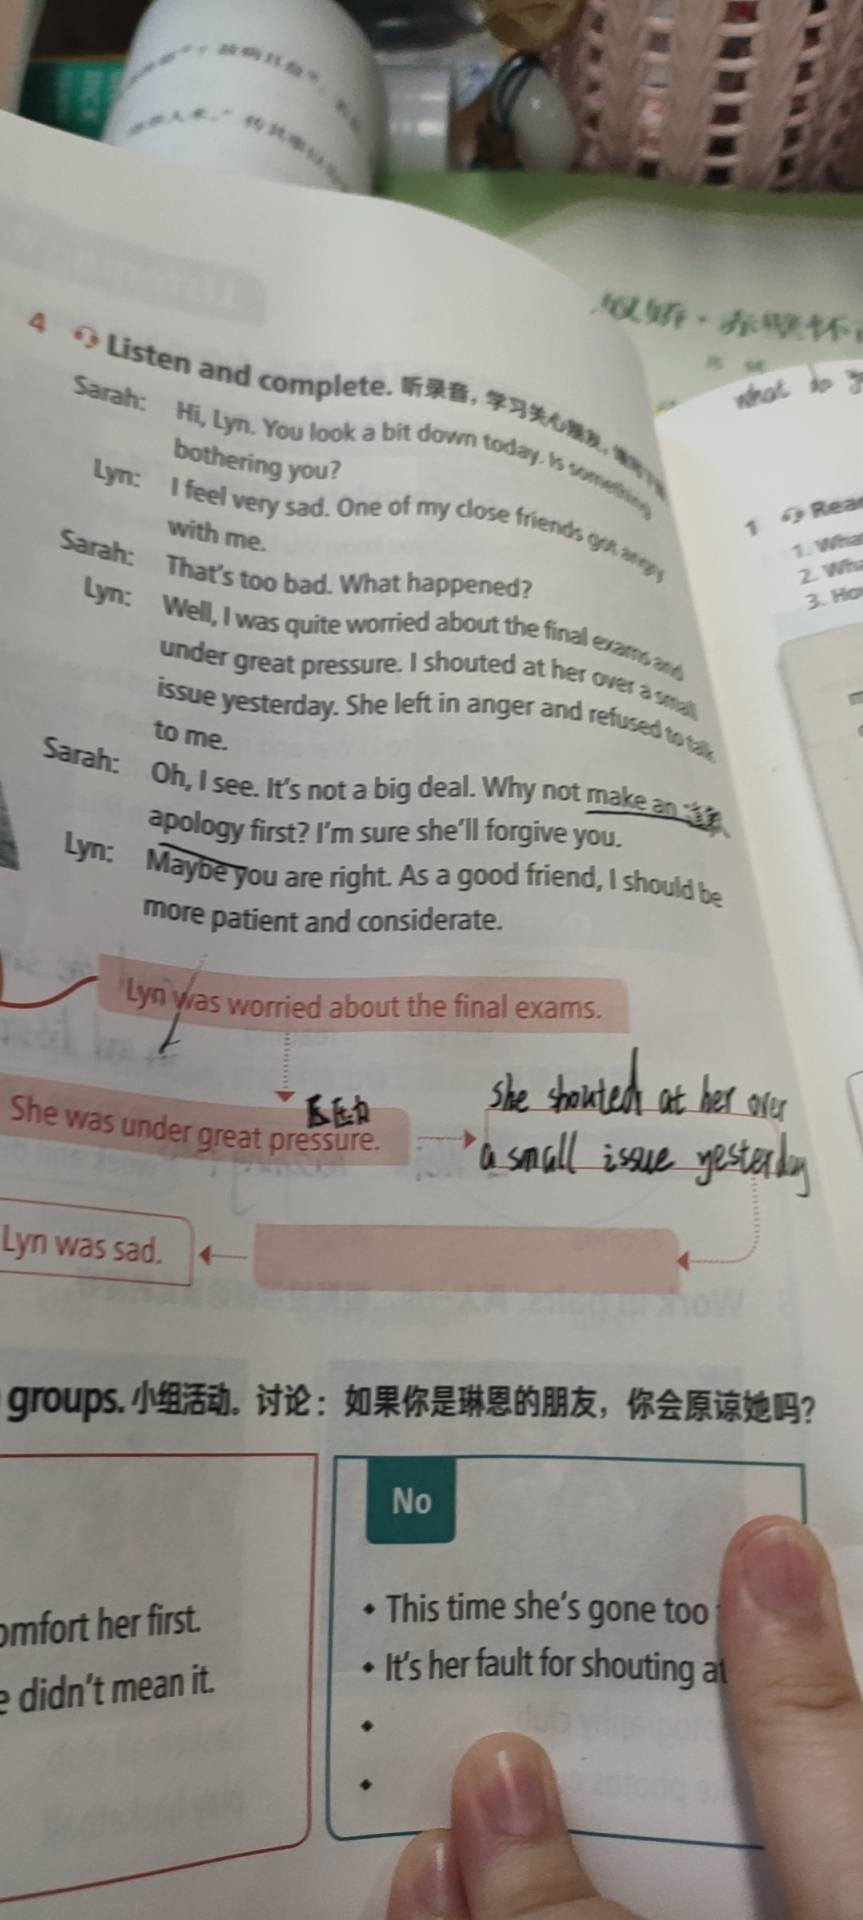 4 Listen and complete. 听录音，学习关心朋友，
Sarah: Hi, Lyn. You look a bit down today. Is something
bothering you?
Lyn: I feel very sad. One of my close friends got angry
with me.
Sarah: That's too bad. What happened?
Lyn: Well, I was quite worried about the final exams and
under great pressure. I shouted at her over a small
issue yesterday. She left in anger and refused to talk
to me.
Sarah: Oh, I see. It's not a big deal. Why not make an
apology first? I'm sure she'll forgive you.
Lyn: Maybe you are right. As a good friend, I should be
more patient and considerate.
Lyn was worried about the final exams.
压力
She was under great pressure.
she shouted at her over
a small issue yesterday
Lyn was sad.
groups. 小组活动。讨论：如果你是琳恩的朋友，你会原谅她吗？
omfort her first.
e didn't mean it.
No
• This time she's gone too
• It's her fault for shouting at
•
•
what do
1 Rea
1. Wha
2. Wh
3. Ho